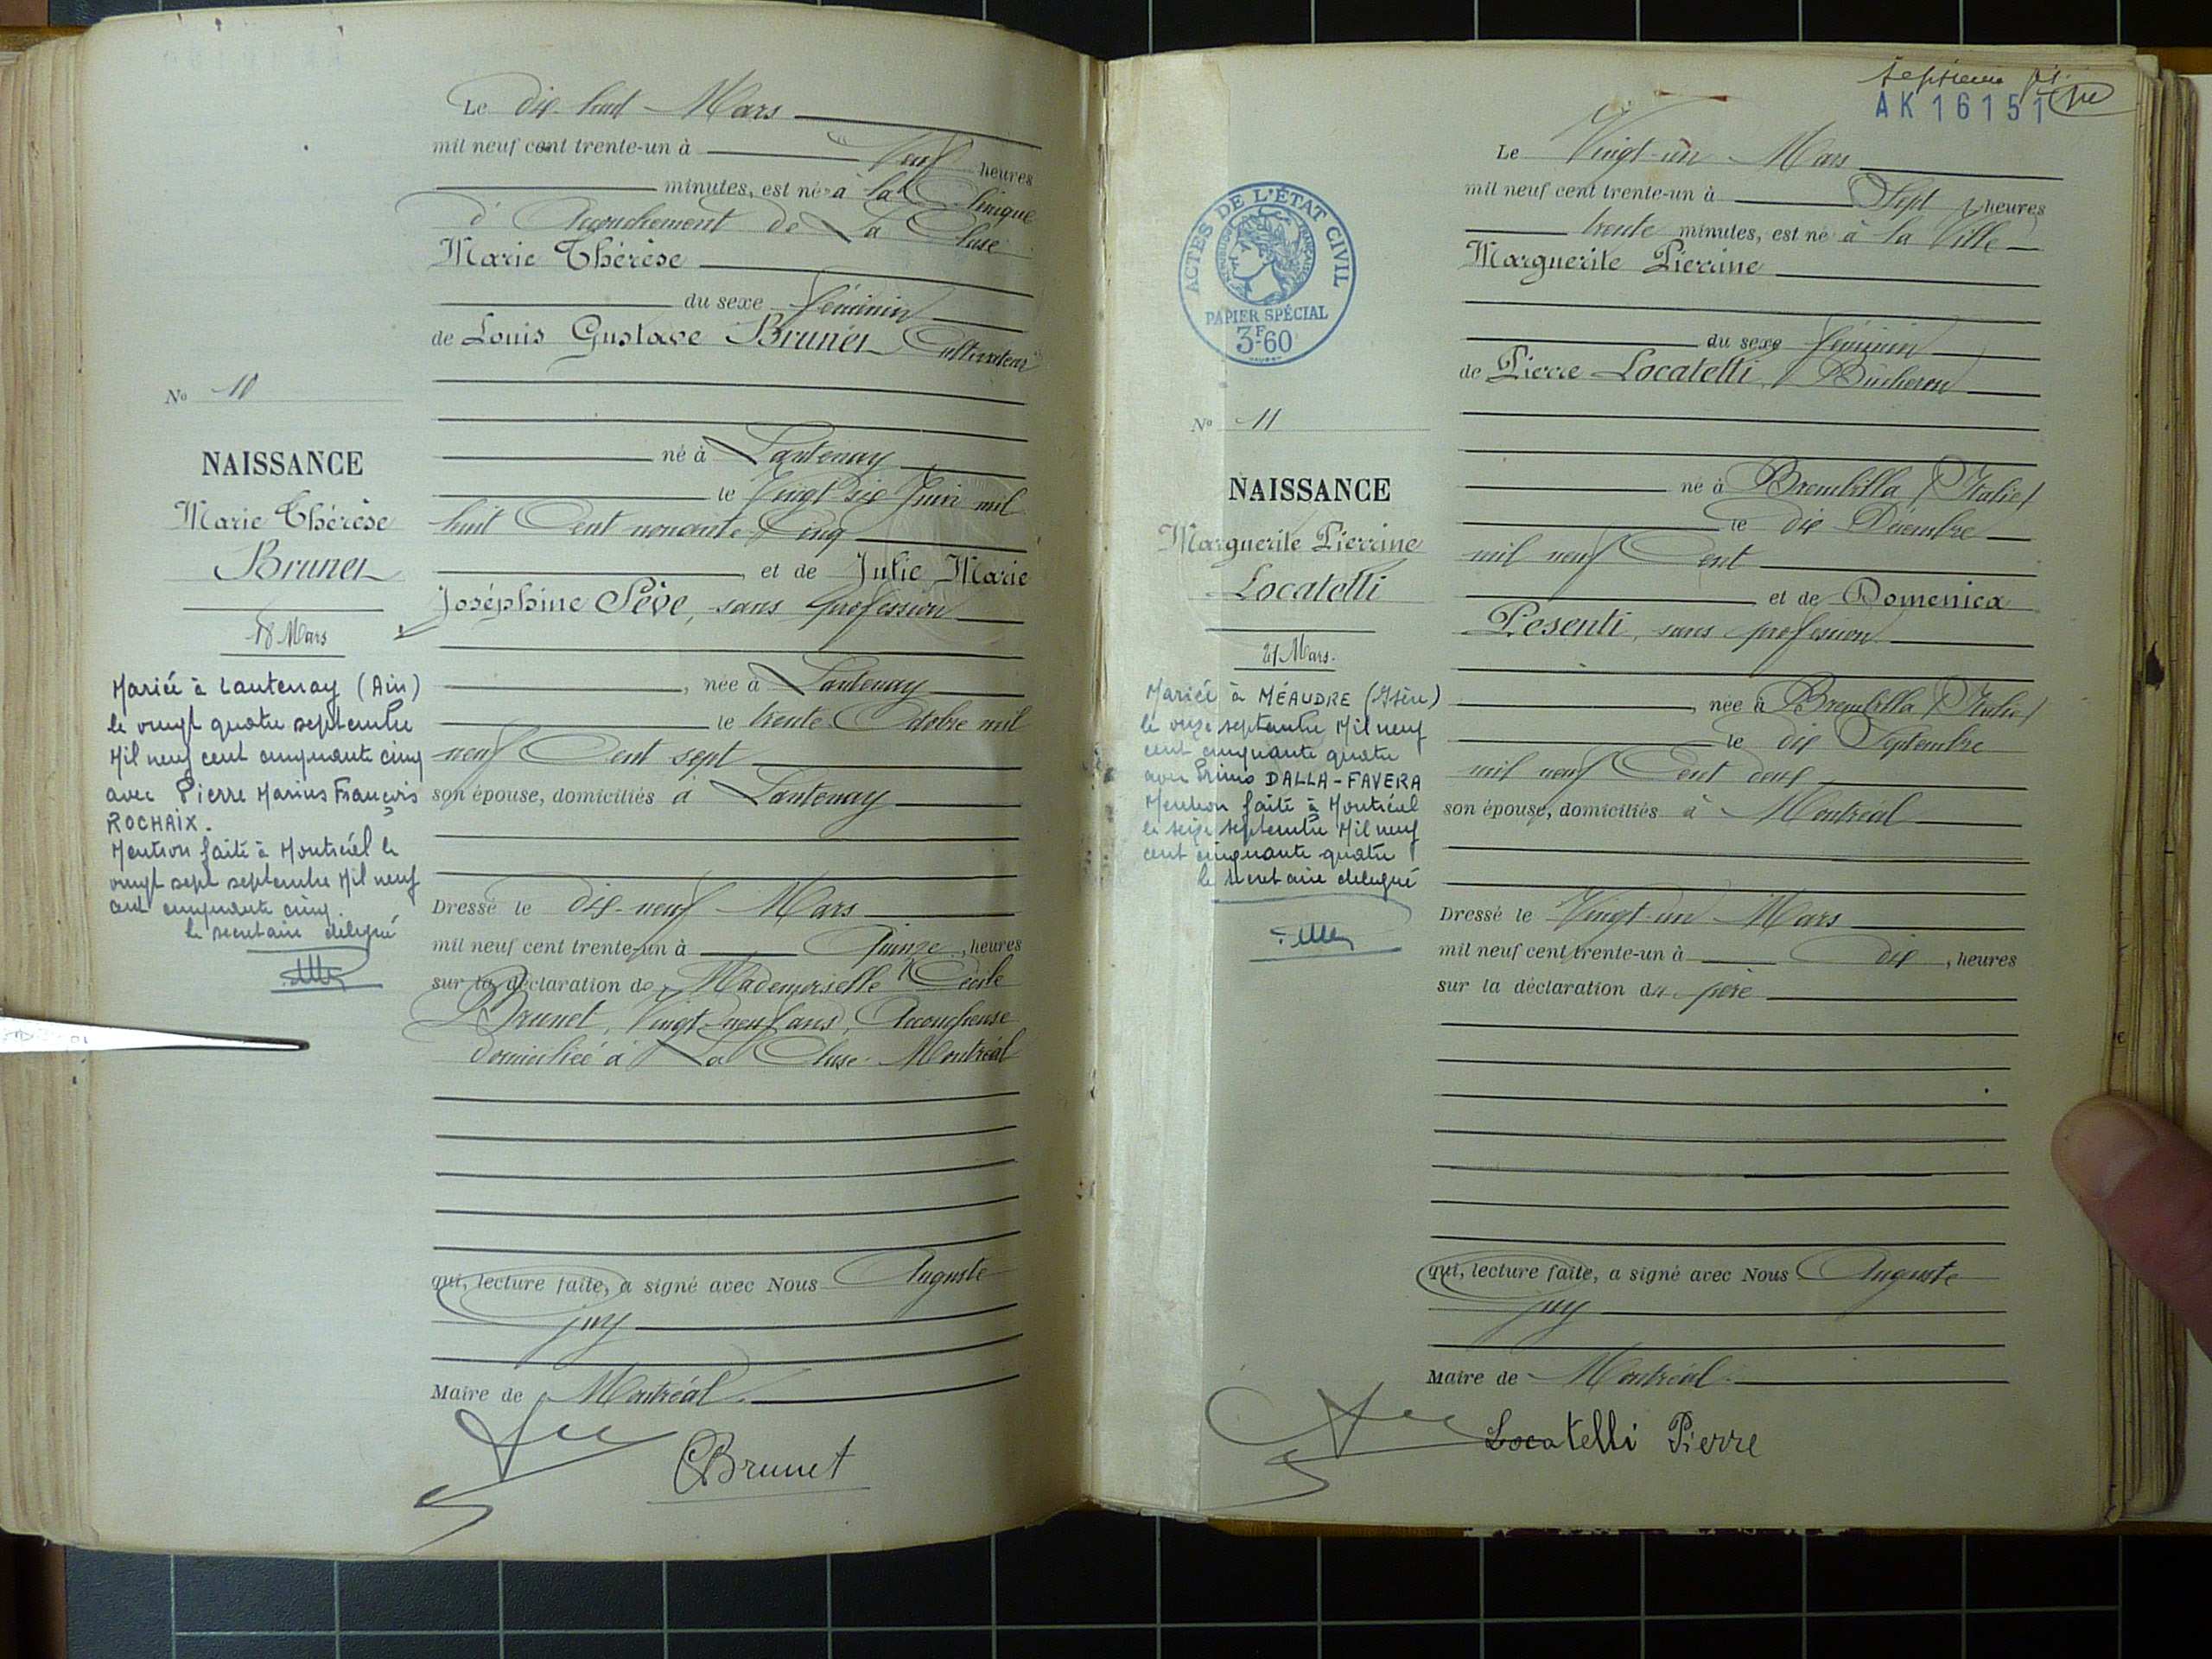 Le dix-huit Mars
mil neuf cent trente-un à neuf heures
minutes, est né à la Clinique
d'Accouchement de La Cluse
Marie Thérèse
du sexe féminin
de Louis Gustave Brunet Cultivateur
né à Lantenay
le vingt-six Juin mil
huit Cent nonante-Cinq
et de Julie Marie
Joséphine Sève, sans profession
née à Lantenay
le trente Octobre mil
neuf Cent sept
son épouse, domiciliés à Lantenay
Dressé le dix-neuf Mars
mil neuf cent trente-un à Quinze, heures
sur la déclaration de Mademoiselle Cécile
Brunet, Vingt-neuf ans, Accoucheuse
domiciliée à La Cluse-Montréal
qui, lecture faite, a signé avec Nous Auguste
Juy
Maire de Montréal.
CBrunet
No 10
NAISSANCE
Marie Thérèse
Brunet
18 Mars
Mariée à Lantenay (Ain)
le vingt quatre septembre
Mil neuf cent cinquante cinq
avec Pierre Marius François
ROCHAIX.
Mention faite à Montréal le
vingt sept septembre Mil neuf
cent cinquante cinq.
le secrétaire délégué
septième
AK16151
Le Vingt-un Mars
mil neuf cent trente-un à Sept heures
trente minutes, est né à la Ville
Marguerite Pierrine
du sexe féminin
de Pierre Locatelli, Bûcheron
né à Brembilla (Italie)
le dix Décembre
mil neuf Cent
et de Domenica
Pesenti, sans profession
née à Brembilla (Italie)
le dix Septembre
mil neuf Cent deux
son épouse, domiciliés à Montréal
Dressé le Vingt-un Mars
mil neuf cent trente-un à dix, heures
sur la déclaration du père
qui, lecture faite, a signé avec Nous Auguste
Juy
Maire de Montréal.
Locatelli Pierre
ACTES DE L'ÉTAT CIVIL
PAPIER SPÉCIAL
3F60
No 11
NAISSANCE
Marguerite Pierrine
Locatelli
21 Mars.
Mariée à MÉAUDRE (Isère)
le onze septembre Mil neuf
cent cinquante quatre
avec Primo DALLA-FAVERA
Mention faite à Montréal
le seize septembre Mil neuf
cent cinquante quatre
le secrétaire délégué